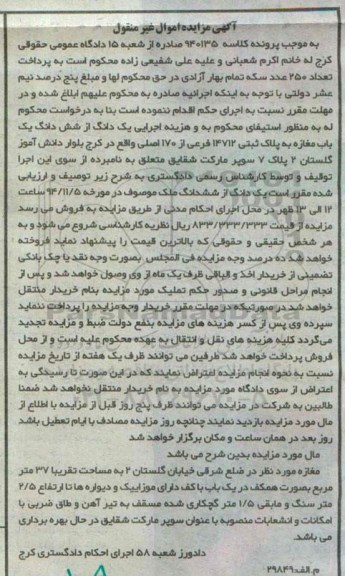 آگهی مزایده اموال غیر منقول
به موجب پرونده کلاسه ۹۴۰۱۳۵ صادره از شعبه ۱۵ دادگاه عمومی حقوقی
کرج له خانم اکرم شعبانی و علیه علی شفیعی زاده محکوم است به پرداخت
تعداد ۲۵۰ عدد سکه تمام بهار آزادی در حق محکوم لها و مبلغ پنج درصد نیم
عشر دولتی با توجه به اینکه اجرائیه صادره به محکوم علیهم ابلاغ شده و در
مهلت مقرر نسبت به اجرای حکم اقدام ننموده است بنا به درخواست محکوم
له به منظور استیفای محکوم به و هزینه اجرایی یک دانگ از شش دانگ یک
باب مغازه به پلاک ثبتی ۱۴۷۱۲ فرعی از ۱۷۰ اصلی واقع در کرج بلوار دانش آموز
گلستان ۲ پلاک ۷ سوپر مارکت شقایق متعلق به نامبرده از سوی این اجرا
توقیف و توسط کارشناس رسمی دادگستری به شرح زیر توصیف و ارزیابی
شده مقرر است یک دانگ از ششدانگ ملک موصوف در مورخه ۹۴/۱۱/۵ ساعت
۱۲ الی ظهر در محل اجرای احکام مدنی از طریق مزایده به فروش می رسد
مزایده از قیمت ۸۳۳/۳۳۳/۳۳۳ ریال نظریه کارشناسی شروع می شود و به
هر شخص حقیقی و حقوقی که بالاترین قیمت را پیشنهاد نماید فروخته
خواهد شد ده درصد وجه مزایده فی المجلس بصورت وجه نقد یا چک بانکی
تضمینی از خریدار اخذ و الباقی ظرف یک ماه از وی وصول خواهد شد و پس از
انجام مراحل قانونی و صدور حکم تملیک مورد مزایده بنام خریدار منتقل
خواهد شد در صورتیکه در مهلت مقرر خریدار وجه مزایده را پرداخت ننماید
سپرده وی پس از کسر هزینه های مزایده بنفع دولت ضبط و مزایده تجدید
می‌گردد کلیه هزینه های نقل و انتقال به عهده محکوم علیه است و از محل
فروش پرداخت خواهد شد طرفین می توانند ظرف یک هفته از تاریخ مزایده
نسبت به نحوه انجام مزایده اعتراض نمایند که در این صورت تا رسیدگی به
اعتراض از سوی دادگاه مورد مزایده به نام خریدار منتقل نخواهد شد ضمنا
طالبین به شرکت در مزایده می توانند ظرف پنج روز قبل از مزایده با اطلاع از
مال مورد مزایده بازدید نمایند چنانچه روز مزایده مصادف با ایام تعطیل باشد
روز بعد در همان ساعت و مکان برگزار خواهد شد
مال مورد مزایده بدین شرح می باشد
مغازه مورد نظر در ضلع شرقی خیابان گلستان ۲ به مساحت تقریبا ۳۷ متر
مربع بصورت همکف در یک باب با کف دارای موزاییک و دیواره ها تا ارتفاع ۲/۵
متر سنگ و مابقی ۱/۵ متر گچکاری شده مسقف به تیر آهن و طاق ضربی با
امکانات و انشعابات منصوبه با عنوان سوپر مارکت شقایق در حال بهره برداری
می باشد.
دادورز شعبه ۵۸ اجرای احکام دادگستری کرج
م.الف:۲۹۸۴۹